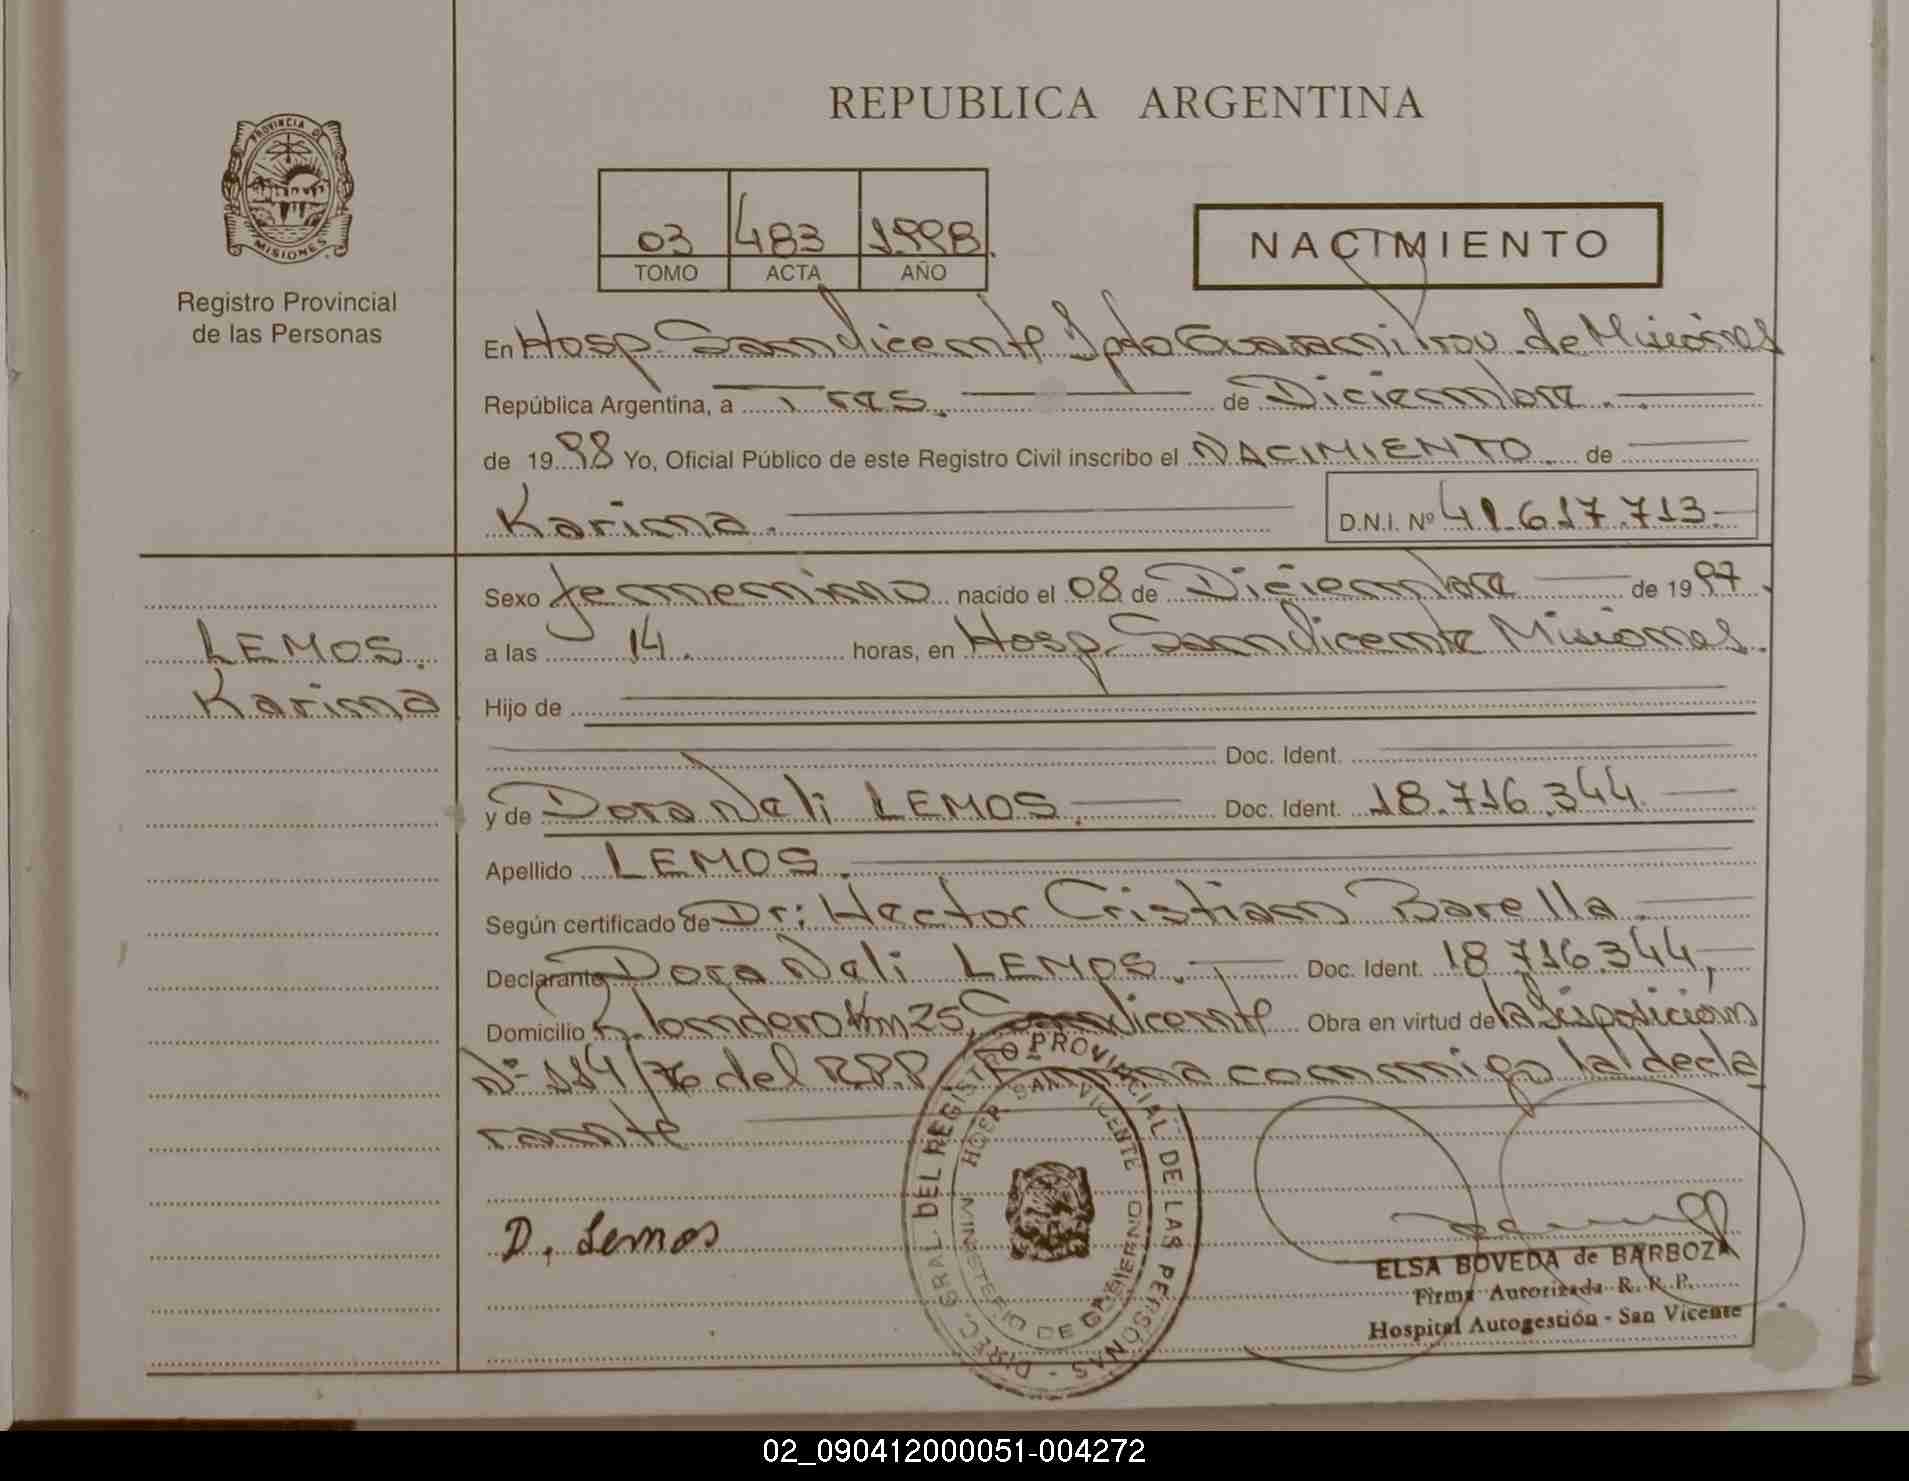 REPUBLICA ARGENTINA
PROVINCIA DE
MISIONES
Registro Provincial
de las Personas
03 483 1998.
TOMO ACTA AÑO
NACIMIENTO
En Hosp. San Vicente Dpto Guarani Prov. de Misiones
República Argentina, a Tres. de Diciembre.
de 1998 Yo, Oficial Público de este Registro Civil inscribo el NACIMIENTO. de
Karina. D.N.I. Nº 41.617.713.
LEMOS.
Karina
Sexo femenino nacido el 08 de Diciembre de 1997.
a las 14. horas, en Hosp. San Vicente Misiones.
Hijo de
Doc. Ident.
y de Dora Nali LEMOS. Doc. Ident. 18.716.344
Apellido LEMOS.
Según certificado de Dr: Hector Cristian Barella.
Declarante Dora Nali LEMOS. Doc. Ident. 18.716.344,
Domicilio Km 25, San Vicente Obra en virtud de la Disposición
Nº 114/76 del R.P.P. Firma conmigo la decla
rante
D. Lemos
DIREC. GRAL. DEL REGISTRO PROVINCIAL DE LAS PERSONAS -
HOSP. SAN VICENTE
MINISTERIO DE GOBIERNO
ELSA BOVEDA de BARBOZA
Firma Autorizada R. R. P.
Hospital Autogestión - San Vicente
02_090412000051-004272